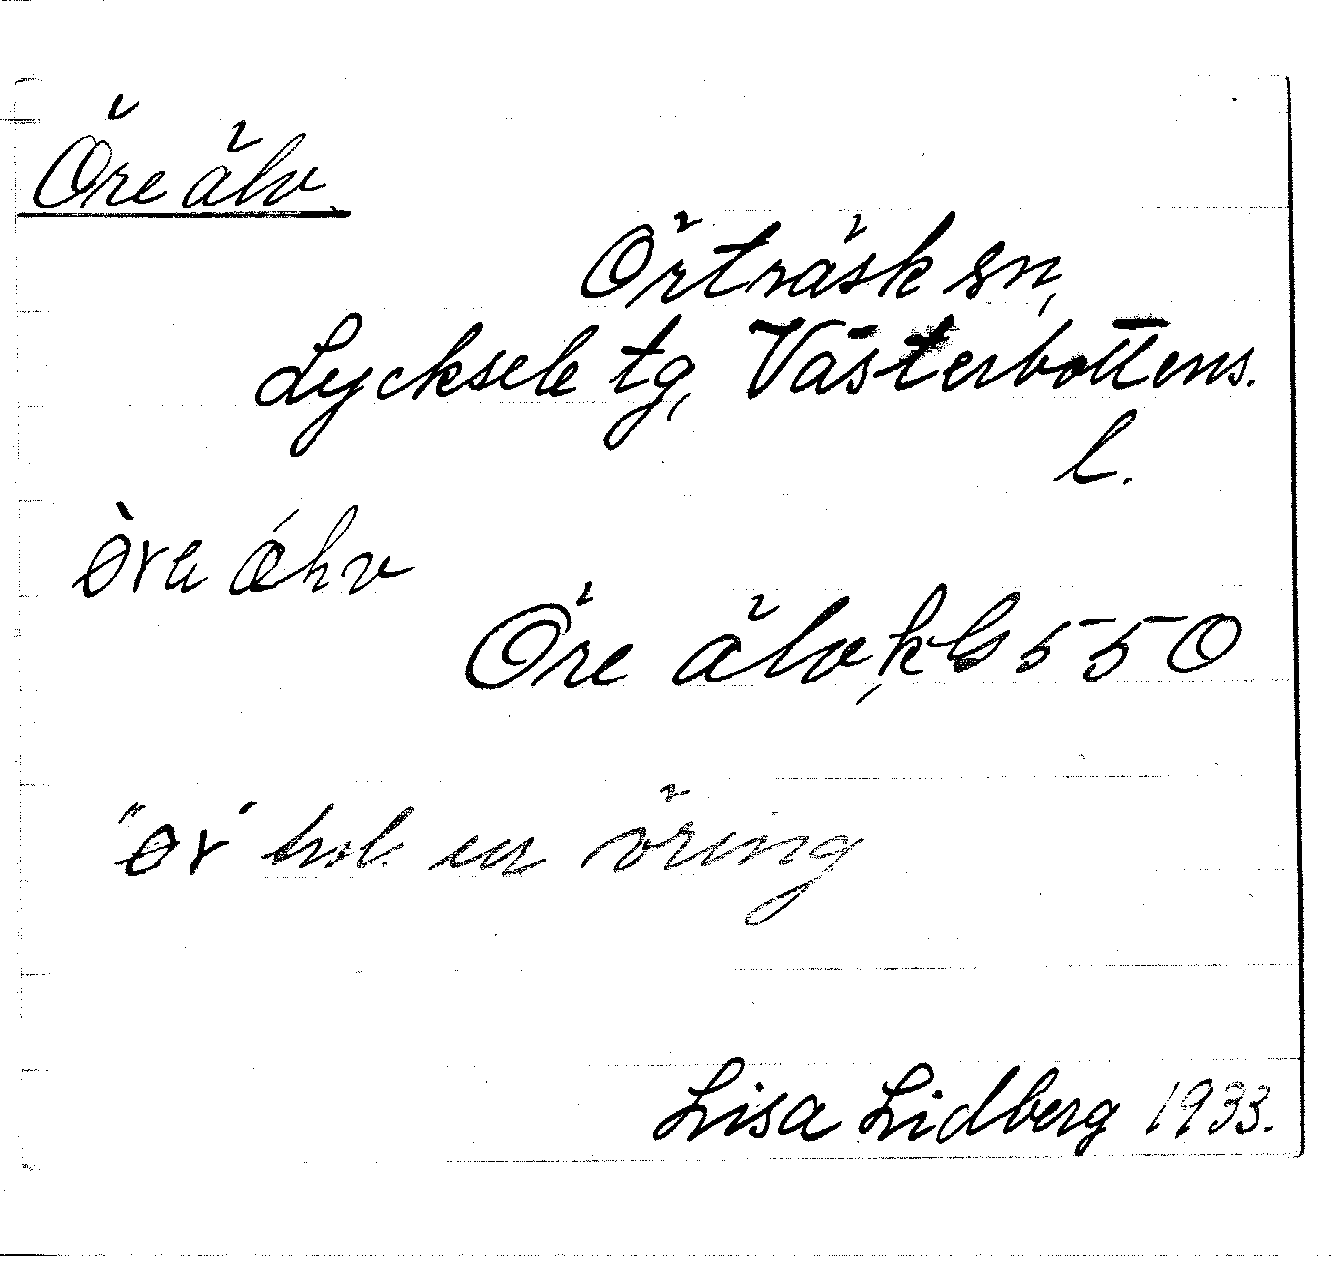 Öre älv
Örträsk sn,
Lycksele tg, Västerbottens.
l.
ɵ̀ra ǽhv
Öre älv, kb 550
"ɵr" trol. en öring
Lisa Lidberg 1933.